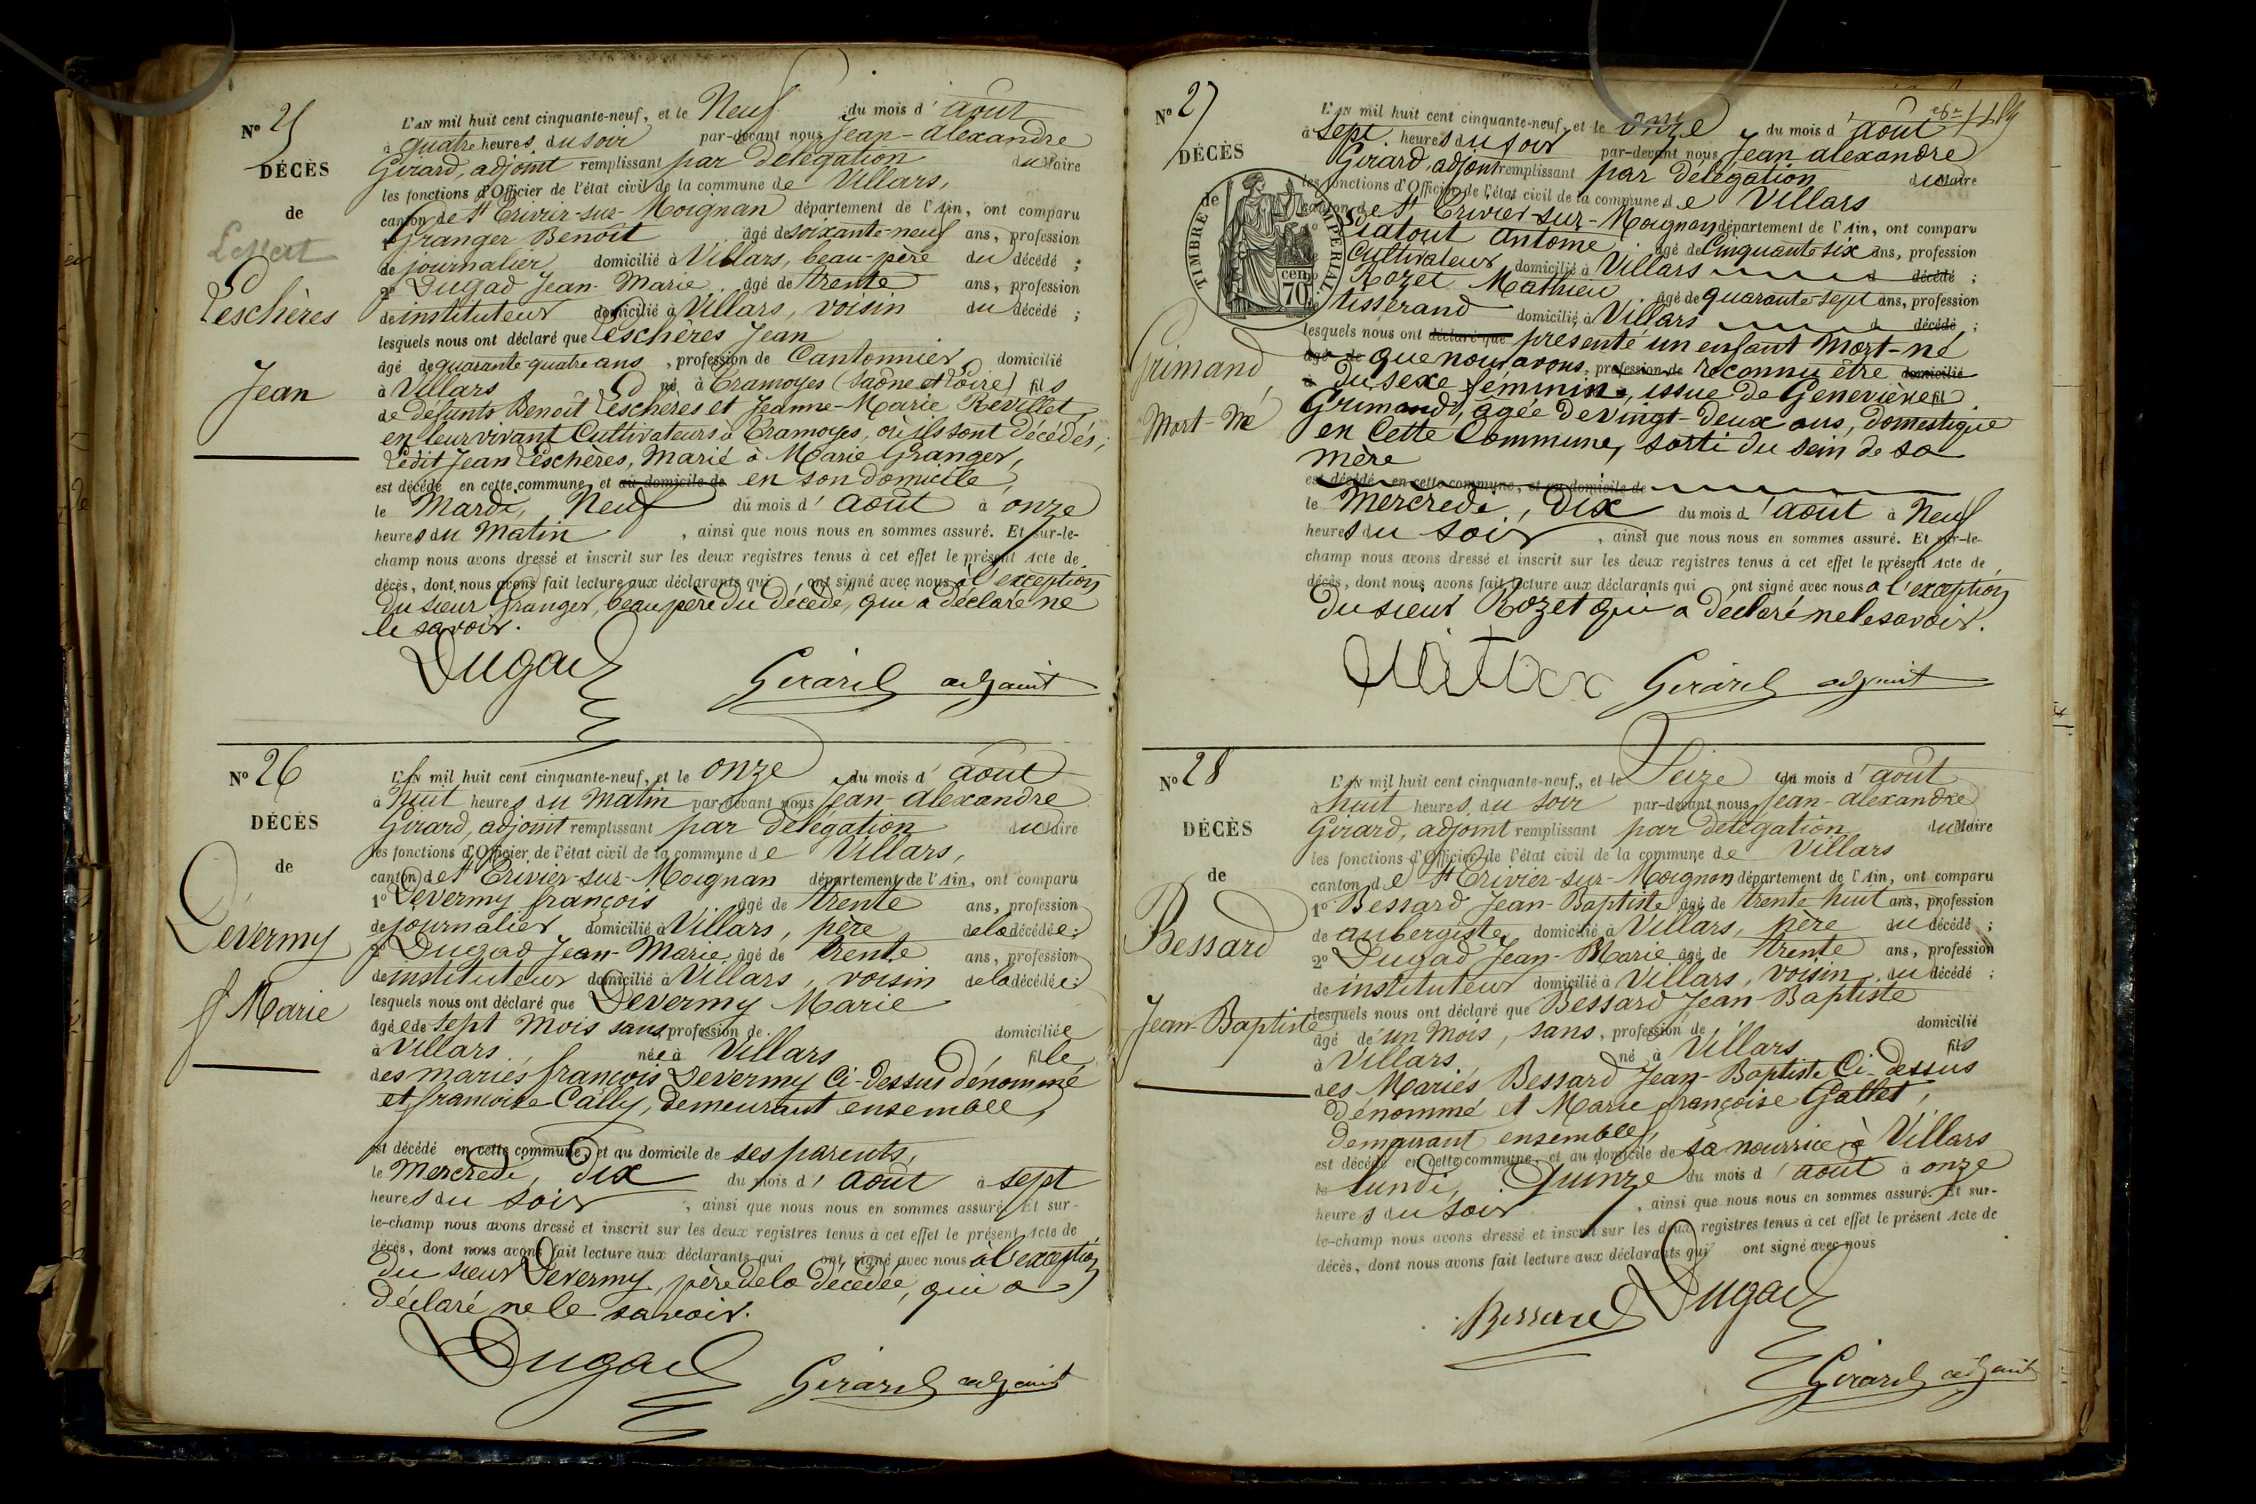 Nº 25
DÉCÈS
de
Leschères
Jean
L'AN mil huit cent cinquante-neuf, et le Neuf du mois d'août
à quatre heures du soir par-devant nous Jean-Alexandre
Girard, adjoint remplissant par délégation du Maire
les fonctions d'Officier de l'état civil de la commune de Villars,
canton de St Trivier-sur-Moignan département de l'Ain, ont comparu
1º Granger Benoît âgé de soixante-neuf ans, profession
de journalier domicilié à Villars, beau-père du décédé ;
2º Dugad Jean-Marie âgé de trente ans, profession
de instituteur domicilié à Villars, voisin du décédé ;
lesquels nous ont déclaré que Leschères Jean
âgé de quarante-quatre ans, profession de Cantonnier domicilié
à Villars né à Tramoyes (Saône et Loire) fils
de défunts Benoît Leschères et Jeanne-Marie Revillet,
en leur vivant Cultivateurs à Tramoyes, où ils sont décédés,
Ledit Jean Leschères, Marié à Marie Granger,
est décédé en cette commune, et au domicile de en son domicile,
le Mardi, Neuf du mois d'août à onze
heures du Matin, ainsi que nous nous en sommes assuré. Et sur-le-
champ nous avons dressé et inscrit sur les deux registres tenus à cet effet le présent Acte de
décès, dont nous avons fait lecture aux déclarants qui ont signé avec nous à l'exception
du sieur Granger, beau père du décédé, qui a déclaré ne
le savoir.
Dugad Girard adjoint
Nº 26
DÉCÈS
de
Devermy
Marie
L'AN mil huit cent cinquante-neuf, et le onze du mois d'août
à huit heures du matin par-devant nous Jean-Alexandre
Girard, adjoint remplissant par délégation du Maire
les fonctions d'Officier de l'état civil de la commune de Villars,
canton de St Trivier-sur-Moignan département de l'Ain, ont comparu
1º Devermy françois âgé de trente ans, profession
de journalier domicilié à Villars, père de la décédée ;
2º Dugad Jean-Marie âgé de trente ans, profession
de instituteur domicilié à Villars, voisin de la décédée ;
lesquels nous ont déclaré que Devermy Marie
âgée de sept Mois sans profession de domiciliée
à Villars née à Villars fille
des mariés françois Devermy Ci-Dessus dénommé
et francoise Cally, demeurant ensemble,
est décédé en cette commune, et au domicile de ses parents,
le Mercredi, Dix du mois d'août à sept
heures du soir, ainsi que nous nous en sommes assuré. Et sur-
le-champ nous avons dressé et inscrit sur les deux registres tenus à cet effet le présent Acte de
décès, dont nous avons fait lecture aux déclarants qui ont signé avec nous à l'exception
du sieur Devermy, père de la décédée, qui a
déclaré ne le savoir.
Dugad Girard adjoint
Nº 27
DÉCÈS
de
TIMBRE IMPERIAL
70 cen
Grimand
Mort-Né
L'AN mil huit cent cinquante-neuf, et le onze du mois d'août
à sept heures du soir par-devant nous Jean alexandre
Girard, adjoint remplissant par délégation du Maire
les fonctions d'Officier de l'état civil de la commune de Villars
canton de St Trivier-sur-Moignan département de l'Ain, ont comparu
antoine âgé de Cinquante-six ans, profession
Cultivateur domicilié à Villars d décédé ;
Rozet Mathieu âgé de quarante-sept ans, profession
tisserand domicilié à Villars d décédé ;
lesquels nous ont déclaré que présenté un enfant Mort-né
âgé de que nous avons, profession de reconnu être domicilié
à du sexe féminin, issue de Geneviève fil
Grimand, âgée de vingt-deux ans, domestique
en cette Commune, sorti du sein de sa
mère
est décédé en cette commune, et au domicile de
le Mercredi, Dix du mois d'août à Neuf
heures du soir, ainsi que nous nous en sommes assuré. Et sur-le-
champ nous avons dressé et inscrit sur les deux registres tenus à cet effet le présent Acte de
décès, dont nous avons fait lecture aux déclarants qui ont signé avec nous à l'exception
du sieur Rozet qui a déclaré ne le savoir.
Girard adjoint
Nº 28
DÉCÈS
de
Bessard
Jean-Baptiste
L'AN mil huit cent cinquante-neuf, et le Seize du mois d'août
à huit heures du soir par-devant nous Jean-alexandre
Girard, adjoint remplissant par délégation du Maire
les fonctions d'Officier de l'état civil de la commune de Villars
canton de St Trivier-sur-Moignan département de l'Ain, ont comparu
1º Bessard Jean-Baptiste âgé de trente huit ans, profession
de aubergiste domicilié à Villars, père du décédé ;
2º Dugad Jean-Marie âgé de trente ans, profession
de instituteur domicilié à Villars, voisin du décédé ;
lesquels nous ont déclaré que Bessard Jean-Baptiste
âgé de un Mois, sans, profession de domicilié
à Villars né à Villars fils
des Mariés Bessard Jean-Baptiste Ci-dessus
dénommé et Marie françoise Gallet,
demeurant ensemble,
est décédé en cette commune, et au domicile de sa nourrice à Villars
le lundi, Quinze du mois d'août à onze
heures du soir, ainsi que nous nous en sommes assuré. Et sur-
le-champ nous avons dressé et inscrit sur les deux registres tenus à cet effet le présent Acte de
décès, dont nous avons fait lecture aux déclarants qui ont signé avec nous
Bessard Dugad
Girard adjoint